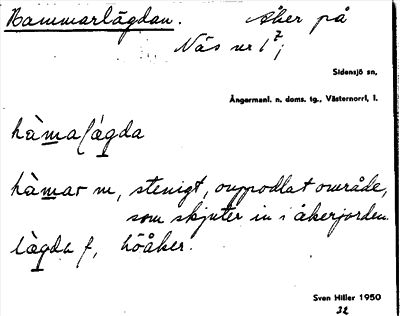 Hammarlägdan. Åker på
Näs nr 1⁷;
Sidensjö sn,
Ångermanl. n. doms. tg., Västernorrl, l.
hàmalágda
hàmar m, stenigt, ouppodlat område,
som skjuter in i åkerjorden.
lägda f, höåker.
Sven Hiller 1950
32